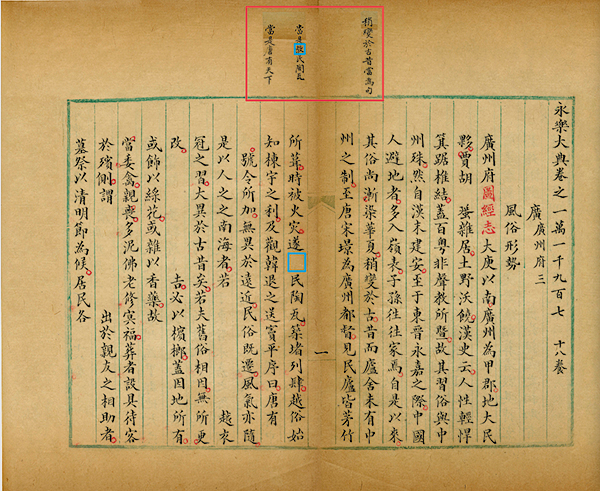 稍變於古昔當為句
當是教民陶瓦
當是唐有天下
永樂大典卷之一萬一千九百七 十八養
廣 廣州府三
風俗形勢
廣州府圖經志大庾以南廣州為甲郡地大民
夥賈胡 蜑雜居土野沃饒漢史云人性輕悍
箕踞椎結蓋百粤非聲教所暨故其習俗與中
州殊然自漢末建安至于東晉永嘉之際中國
人避地者多入嶺表子孫往往家焉自是以來
其俗尚漸染華夏稍變於古昔而廬舍未有中
州之制至唐宋璟為廣州都督見民廬皆茅竹
一
所葺時被火災遂 民陶瓦築堵列肆越俗始
知棟宇之利及觀韓退之送竇平序曰唐有
號令所加無異於遠近民俗既遷風氣亦隨
是以人之之南海者若 越衣
冠之習大異於古昔矣若夫舊俗相因無所更
改 吉必以檳榔蓋因地所有
或飾以綵花或雜以香藥故
當委禽親喪多泥佛老修冥福葬者設具待客
於殯側謂 出於親友之相助者
墓祭以清明節為候居民各